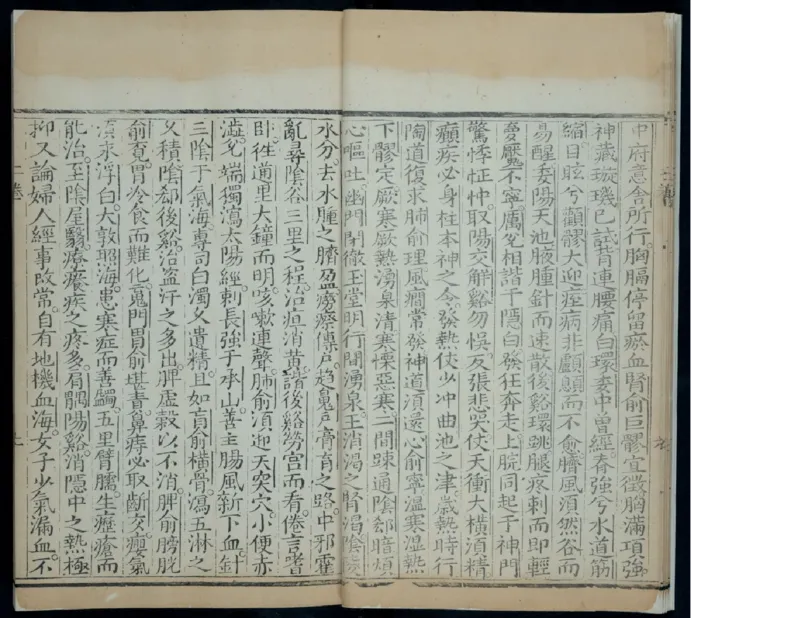 中府意舍所行胸膈停留瘀血腎俞巨髎宜徵胸滿項強
神藏璇璣已試背連腰痛白環委中曾經脊強兮水道筋
縮目眩兮顴髎大迎痙病非顱顖而不愈臍風須然谷而
易醒委陽天池腋腫針而速散後谿環跳腿疼刺而即輕
夢魘不寧厲兌相諧于隱白發狂奔走上脘同起于神門
驚悸怔忡取陽交解谿勿悞反張悲哭仗天衝大橫須精
癲疾必身柱本神之令發熱仗少冲曲池之津歲熱時行
陶道復求肺俞理風癇常發神道須還心俞寧溫寒濕熱
下髎定厥寒厥熱湧泉清寒慄惡寒二間踈通陰郄暗煩
心嘔吐幽門閉徹玉堂明行間湧泉主消渴之腎渴陰陵
水分去水腫之臍盈癆瘵傳尸趍魄戶膏肓之路中邪霍
亂尋陰谷三里之程治疸消黃諧後谿勞宮而看倦言嗜
臥徃通里大鐘而明咳嗽連聲肺俞須迎天突穴小便赤
澁兌端獨瀉太陽經剌長強于承山善主腸風新下血針
三陰于氣海專司白濁乆遺精且如肓俞橫骨瀉五淋之
乆積陰郄後谿治盜汗之多出脾虛穀以不消脾俞膀胱
俞覔胃冷食而難化䰟門胃俞堪責鼻痔必取齗交癭氣
須求浮白大敦照海患寒疝而善蠲五里臂臑生癧瘡而
能治至陰屋翳療癢疾之疼多肩髃陽谿消隱中之熱極
抑又論婦人經事改常自有地機血海女子少氣漏血不